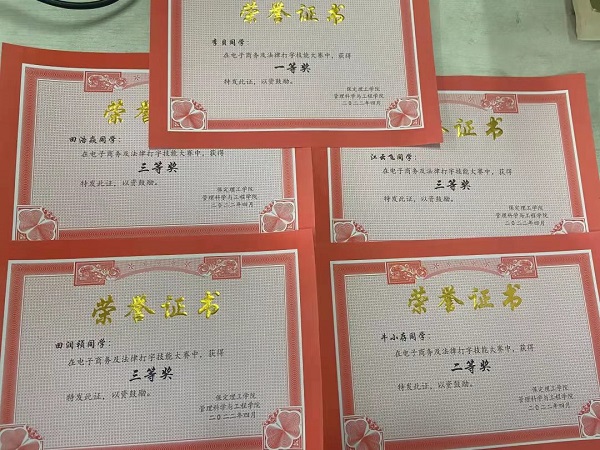 荣誉证书
李贝同学
在电子商务及法律打字技能大赛中，获得
一等奖
特发此证，以资鼓励。
保定理工学院
管理科学与工程学院
二〇二二年四月
荣
田浩焱同学：
在电子商务及法律打字技能大赛中，获得
三等奖
特发此证，以资鼓励。
保定理工学院
管理科学与工程学院
二〇二二年四月
证书
江云飞同学：
在电子商务及法律打字技能大赛中，获得
三等奖
特发此证，以资鼓励。
保定理工学院
管理科学与工程学院
二〇二二年四月
荣誉证书
田润祯同学：
在电子商务及法律打字技能大赛中，获得
三等奖
特发此证，以资鼓励。
保定理工学院
管理科学与工程学院
二〇二二年四月
荣誉证书
牛小森同学：
在电子商务及法律打字技能大赛中，获得
二等奖
特发此证，以资鼓励。
保定理工学院
管理科学与工程学院
二〇二二年四月